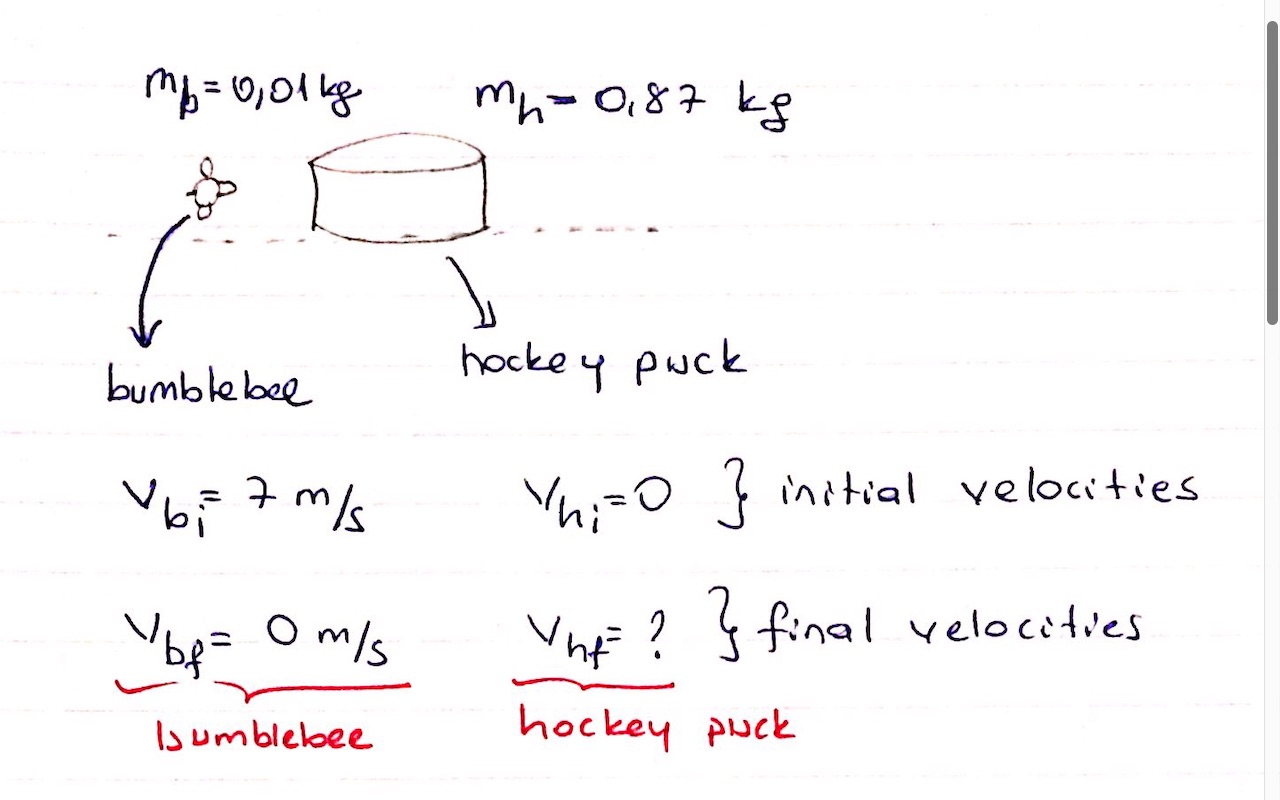 m_b = 0,01 kg   m_h = 0,87 kg
bumblebee   hockey puck
V_bi = 7 m/s   V_hi = 0 } initial velocities
V_bf = 0 m/s   V_hf = ? } final velocities
bumblebee   hockey puck